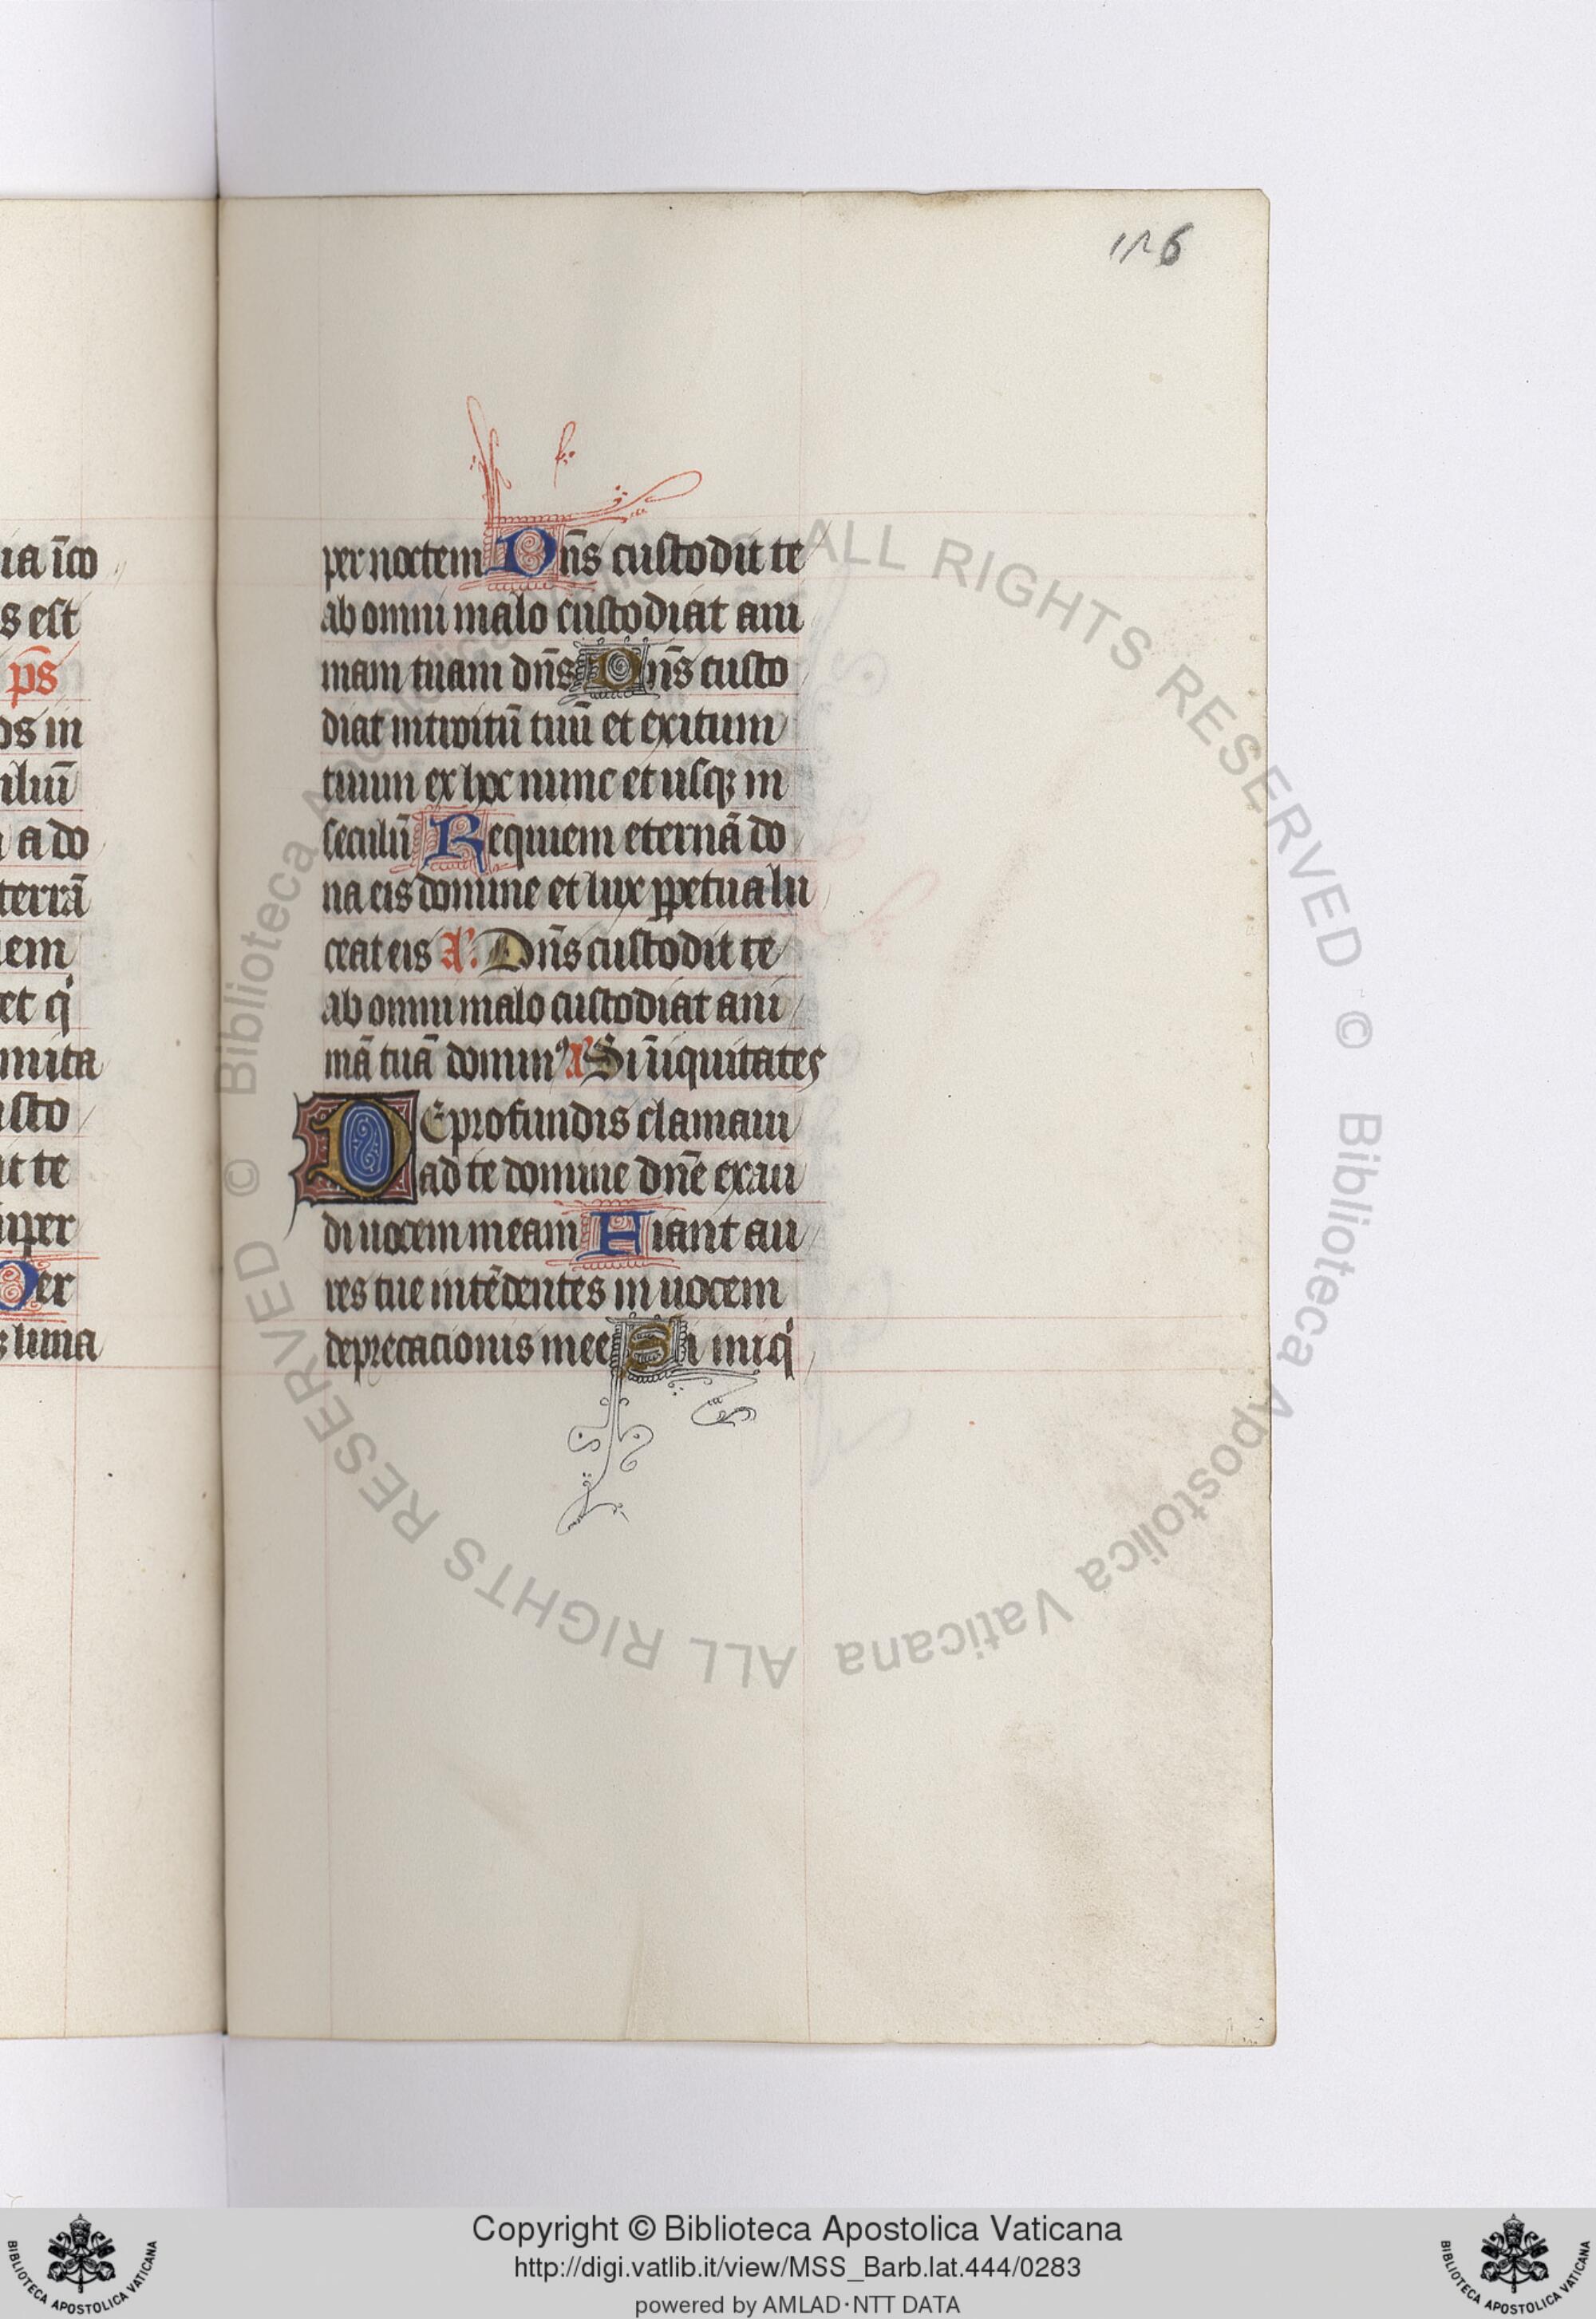 ia īco
s est
ps̄
os in
iliū
a do
terrā
em
et q
mita
usto
it te
uper
Per
luna
126
per noctem Dn̄s custodit te
ab omni malo custodiat ani
mam tuam dn̄s Dn̄s custo
diat introitū tuū et exitum
tuum ex hoc nunc et usqꝫ in
seculū Requiem eternā do
na eis domine et lux ꝑpetua lu
ceat eis A. Dn̄s custodit te
ab omni malo custodiat ani
mā tuā domin⁹ A Si īiquitates
De profundis clamaui
ad te domine dn̄e exau
di uocem meam Fiant au
res tue intēdentes in uocem
deprecationis mee Si iniq
© Biblioteca Apostolica Vaticana ALL RIGHTS RESERVED © Biblioteca Apostolica Vaticana ALL RIGHTS RESERVED
BIBLIOTECA APOSTOLICA VATICANA
Copyright © Biblioteca Apostolica Vaticana
http://digi.vatlib.it/view/MSS_Barb.lat.444/0283
powered by AMLAD·NTT DATA
BIBLIOTECA APOSTOLICA VATICANA